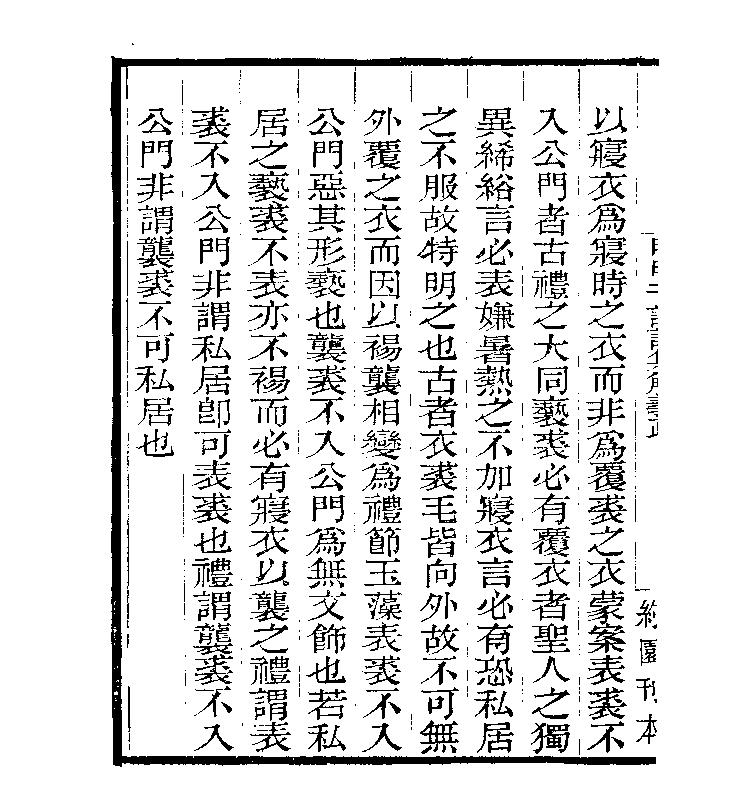 約園刊本
以寢衣爲寢時之衣而非爲覆裘之衣蒙案表裘不
入公門者古禮之大同褻裘必有覆衣者聖人之獨
異絺綌言必表嫌暑熱之不加寢衣言必有恐私居
之不服故特明之也古者衣裘毛皆向外故不可無
外覆之衣而因以裼襲相變爲禮節玉藻表裘不入
公門惡其形褻也襲裘不入公門爲無文飾也若私
居之褻裘不表亦不裼而必有寢衣以襲之禮謂表
裘不入公門非謂私居卽可表裘也禮謂襲裘不入
公門非謂襲裘不可私居也